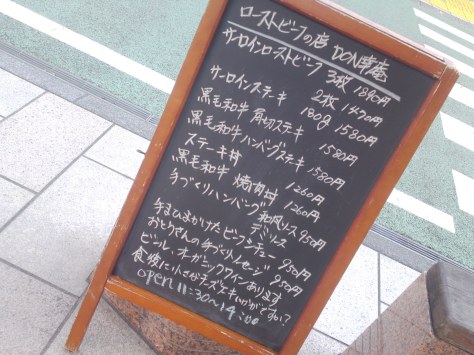 ローストビーフの店 DON唐庵
サーロインローストビーフ 3枚 1890円
2枚 1470円
サーロインステーキ 180g 1580円
黒毛和牛 角切ステーキ 1580円
黒毛和牛 ハンバーグステーキ 1580円
ステーキ丼 1260円
黒毛和牛 焼肉丼 1260円
手づくりハンバーグ 和風ソース 950円
デミソース
手まひまかけたビーフシチュー 950円
おとうさんの手づくりソーセージ 950円
ビール、オーガニックワインあります
食後に小さなチーズケーキいかがですか?
open 11:30〜14:00